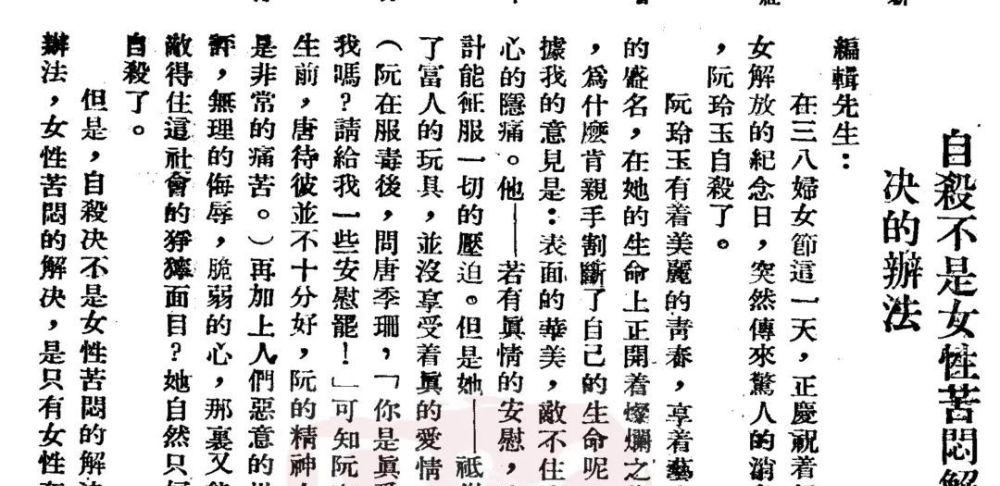 自殺不是女性苦悶解
决的辦法
編輯先生：
在三八婦女節這一天，正慶祝着
女解放的紀念日，突然傳來驚人的消
，阮玲玉自殺了。
阮玲玉有着美麗的靑春，享着藝
的盛名，在她的生命上正開着燦爛之
，爲什麽肯親手割斷了自己的生命呢
據我的意見是：表面的華美，敵不住
心的隱痛。他——若有眞情的安慰，
計能征服一切的壓迫。但是她——祗
了富人的玩具，並沒享受着眞的愛情
（阮在服毒後，問唐季珊，「你是眞
我嗎？請給我一些安慰罷！」可知阮
生前，唐待彼並不十分好，阮的精神
是非常的痛苦。）再加上人們惡意的
評，無理的侮辱，脆弱的心，那裏又能
敵得住這社會的猙獰面目？她自然只
自殺了。
但是，自殺决不是女性苦悶的解决
辦法，女性苦悶的解决，是只有女性